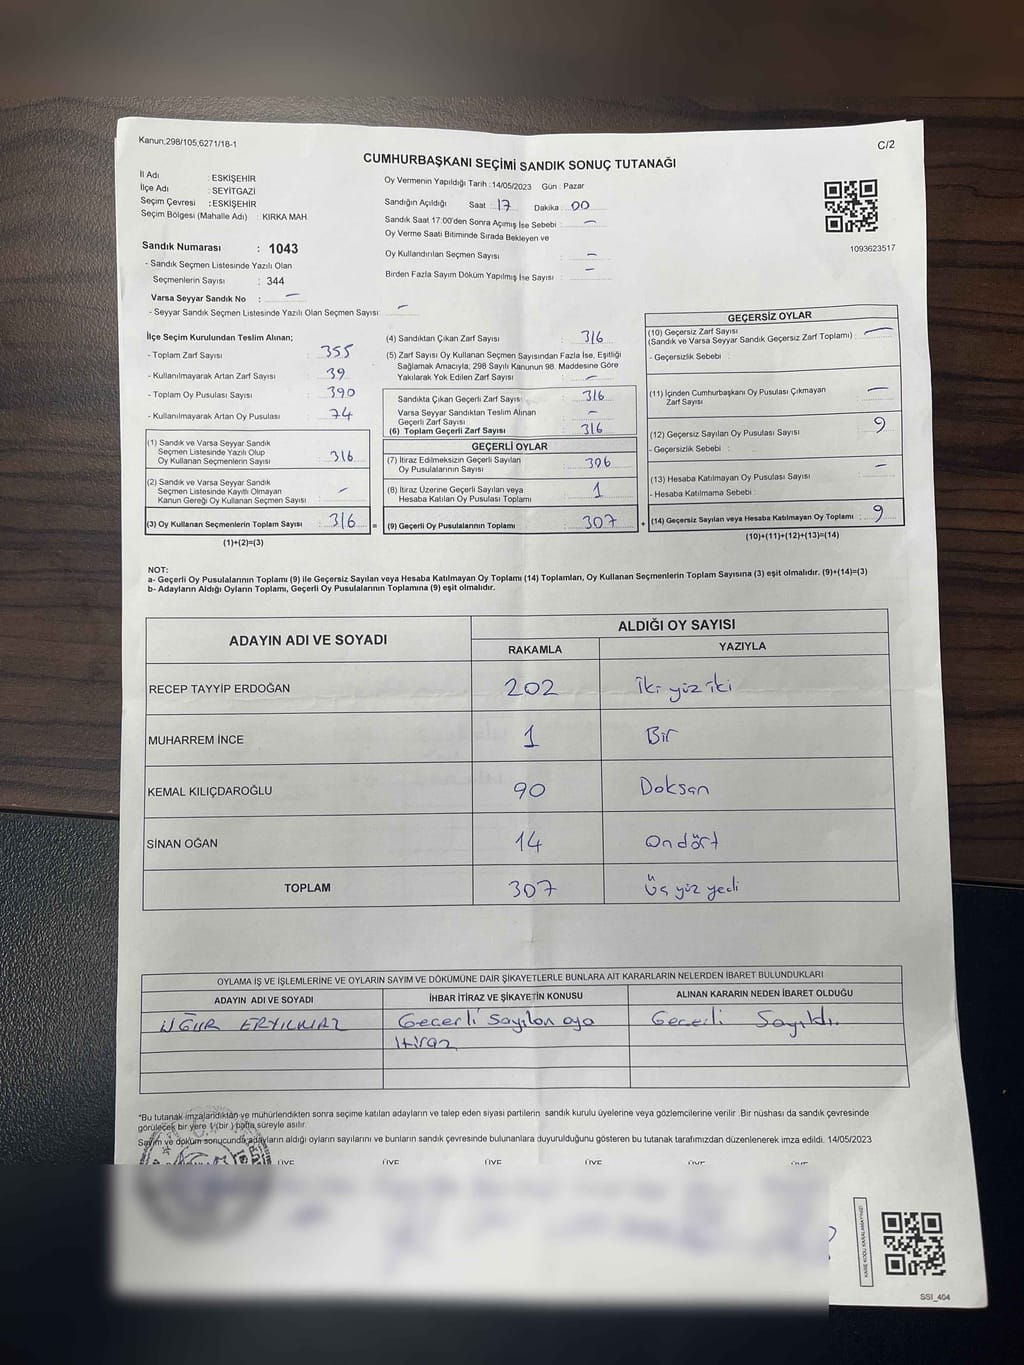 Kanun;298/105,6271/18-1
C/2
CUMHURBAŞKANI SEÇİMİ SANDIK SONUÇ TUTANAĞI
İl Adı : ESKİŞEHİR
İlçe Adı : SEYİTGAZİ
Seçim Çevresi : ESKİŞEHİR
Seçim Bölgesi (Mahalle Adı) : KIRKA MAH
Sandık Numarası : 1043
- Sandık Seçmen Listesinde Yazılı Olan
Seçmenlerin Sayısı : 344
Varsa Seyyar Sandık No : —
- Seyyar Sandık Seçmen Listesinde Yazılı Olan Seçmen Sayısı: —
Oy Vermenin Yapıldığı Tarih :14/05/2023 Gün : Pazar
Sandığın Açıldığı Saat 17 Dakika 00
Sandık Saat 17:00'den Sonra Açımış İse Sebebi : —
Oy Verme Saati Bitiminde Sırada Bekleyen ve
Oy Kullandırılan Seçmen Sayısı : —
Birden Fazla Sayım Döküm Yapılmış İse Sayısı : —
1093623517
İlçe Seçim Kurulundan Teslim Alınan;
- Toplam Zarf Sayısı : 355
- Kullanılmayarak Artan Zarf Sayısı : 39
- Toplam Oy Pusulası Sayısı : 390
- Kullanılmayarak Artan Oy Pusulası : 74
(1) Sandık ve Varsa Seyyar Sandık
Seçmen Listesinde Yazılı Olup
Oy Kullanan Seçmenlerin Sayısı : 316
(2) Sandık ve Varsa Seyyar Sandık
Seçmen Listesinde Kayıtlı Olmayan
Kanun Gereği Oy Kullanan Seçmen Sayısı : —
(3) Oy Kullanan Seçmenlerin Toplam Sayısı : 316 =
(1)+(2)=(3)
(4) Sandıktan Çıkan Zarf Sayısı : 316
(5) Zarf Sayısı Oy Kullanan Seçmen Sayısından Fazla İse, Eşitliği
Sağlamak Amacıyla; 298 Sayılı Kanunun 98. Maddesine Göre
Yakılarak Yok Edilen Zarf Sayısı : —
Sandıkta Çıkan Geçerli Zarf Sayısı : 316
Varsa Seyyar Sandıktan Teslim Alınan
Geçerli Zarf Sayısı : —
(6) Toplam Geçerli Zarf Sayısı : 316
GEÇERLİ OYLAR
(7) İtiraz Edilmeksizin Geçerli Sayılan
Oy Pusulalarının Sayısı : 306
(8) İtiraz Üzerine Geçerli Sayılan veya
Hesaba Katılan Oy Pusulası Toplamı : 1
(9) Geçerli Oy Pusulalarının Toplamı : 307 +
GEÇERSİZ OYLAR
(10) Geçersiz Zarf Sayısı
(Sandık ve Varsa Seyyar Sandık Geçersiz Zarf Toplamı) : —
- Geçersizlik Sebebi :
(11) İçinden Cumhurbaşkanı Oy Pusulası Çıkmayan
Zarf Sayısı : —
(12) Geçersiz Sayılan Oy Pusulası Sayısı : 9
- Geçersizlik Sebebi :
(13) Hesaba Katılmayan Oy Pusulası Sayısı : —
- Hesaba Katılmama Sebebi :
(14) Geçersiz Sayılan veya Hesaba Katılmayan Oy Toplamı : 9
(10)+(11)+(12)+(13)=(14)
NOT:
a- Geçerli Oy Pusulalarının Toplamı (9) ile Geçersiz Sayılan veya Hesaba Katılmayan Oy Toplamı (14) Toplamları, Oy Kullanan Seçmenlerin Toplam Sayısına (3) eşit olmalıdır. (9)+(14)=(3)
b- Adayların Aldığı Oyların Toplamı, Geçerli Oy Pusulalarının Toplamına (9) eşit olmalıdır.
ADAYIN ADI VE SOYADI ALDIĞI OY SAYISI
RAKAMLA YAZIYLA
RECEP TAYYİP ERDOĞAN 202 İki yüz iki
MUHARREM İNCE 1 Bir
KEMAL KILIÇDAROĞLU 90 Doksan
SİNAN OĞAN 14 Ondört
TOPLAM 307 Üç yüz yedi
OYLAMA İŞ VE İŞLEMLERİNE VE OYLARIN SAYIM VE DÖKÜMÜNE DAİR ŞİKAYETLERLE BUNLARA AİT KARARLARIN NELERDEN İBARET BULUNDUKLARI
ADAYIN ADI VE SOYADI İHBAR İTİRAZ VE ŞİKAYETİN KONUSU ALINAN KARARIN NEDEN İBARET OLDUĞU
UĞUR ERYILMAZ Geçerli Sayılan oya Geçerli Sayıldı.
itiraz
*Bu tutanak imzalandıktan ve mühürlendikten sonra seçime katılan adayların ve talep eden siyasi partilerin sandık kurulu üyelerine veya gözlemcilerine verilir .Bir nüshası da sandık çevresinde
görülecek bir yere 1 (bir ) hafta süreyle asılır.
Sayım ve döküm sonucunda adayların aldığı oyların sayılarını ve bunların sandık çevresinde bulunanlara duyurulduğunu gösteren bu tutanak tarafımızdan düzenlenerek imza edildi. 14/05/2023
ÜYE ÜYE ÜYE ÜYE ÜYE ÜYE
KARE KODU KARALAMAYINIZ!
SSI_404